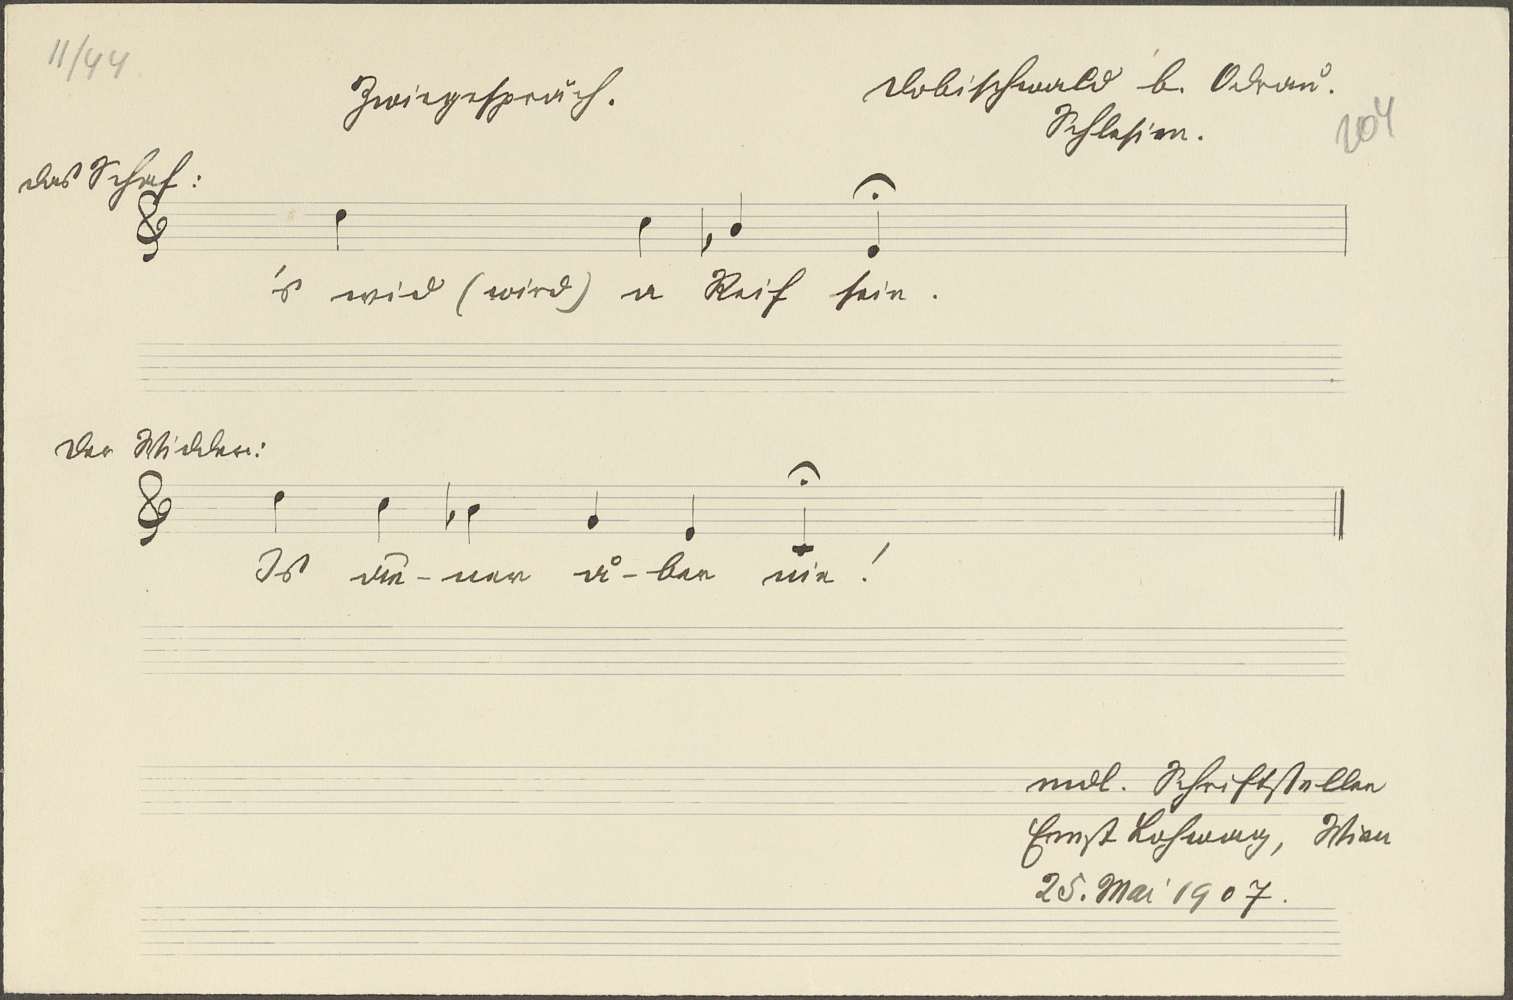 11/44
Zwiegespräch.
Dobischwald b. Odrau.
Schlesien.
204
das Schaf:
's wid (wird) a Reif sein.
Der Widder:
Is die-ner å-ber nie!
mdl. Schriftsteller
Ernst Lohwag, Wien
25. Mai 1907.